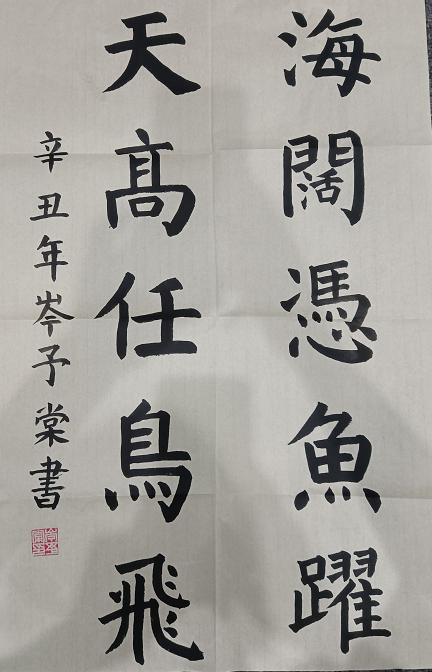 海闊憑魚躍
天髙任鳥飛
辛丑年岑予棠書